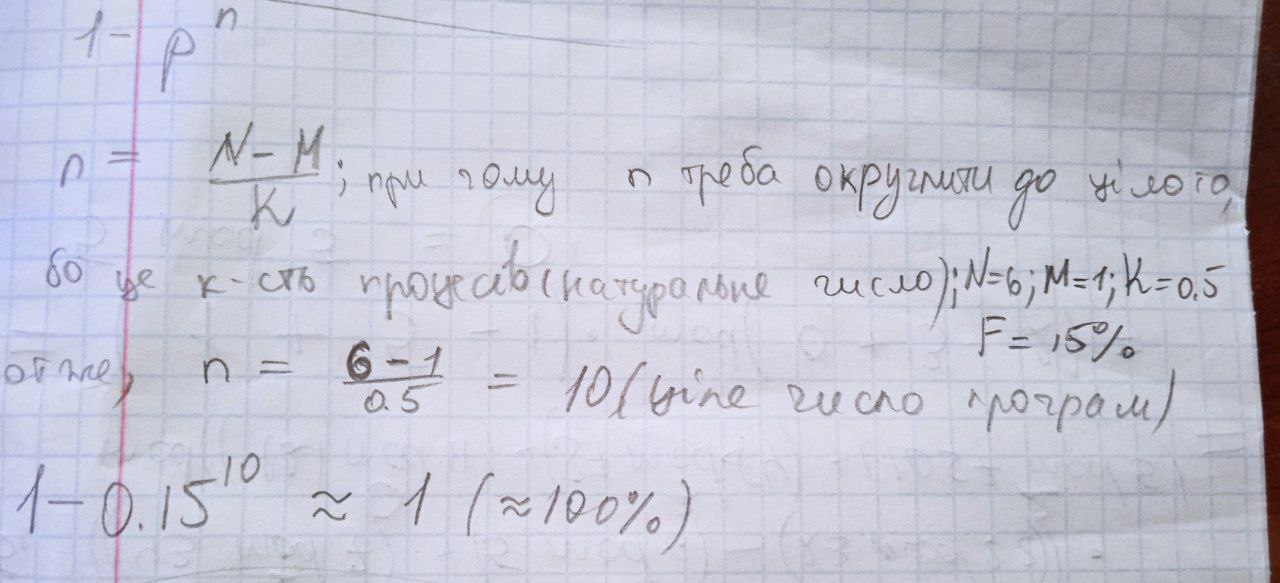 1 - p^n
n = (N - M)/K ; при чому n треба округлити до цілого,
бо це к-сть процесів (натуральне число); N=6; M=1; K=0.5
F = 15%
отже, n = (6 - 1)/0.5 = 10 (ціле число програм)
1 - 0.15^10 ≈ 1 (≈100%)